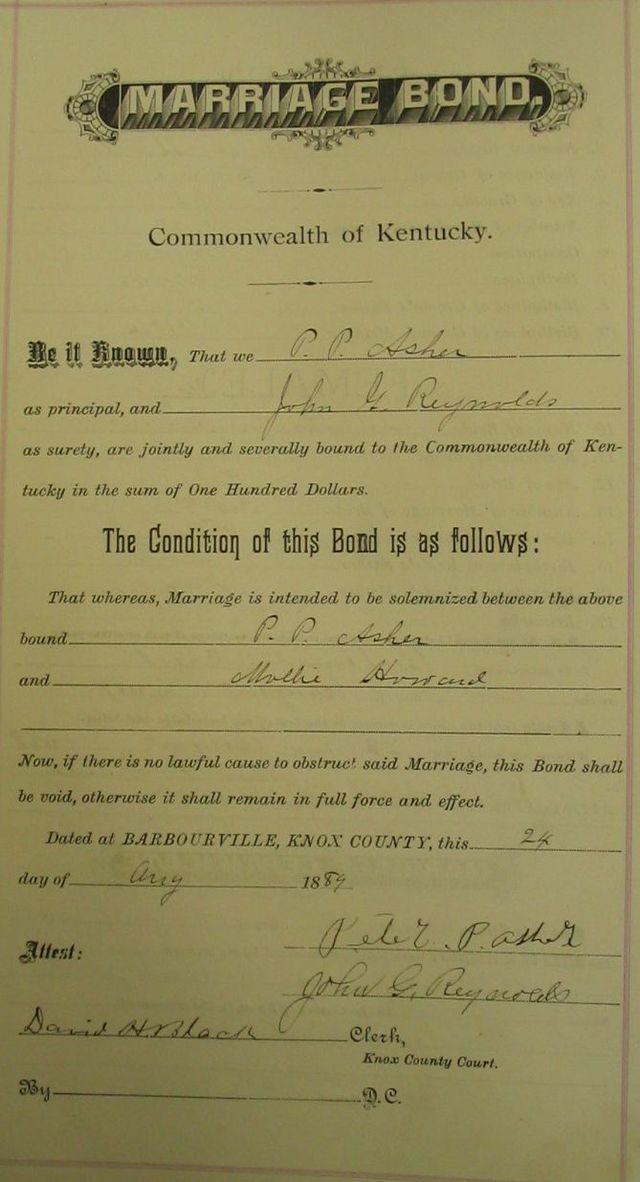 MARRIAGE BOND.
Commonwealth of Kentucky.
Be it Known, That we P. P. Asher
as principal, and John G. Reynolds
as surety, are jointly and severally bound to the Commonwealth of Ken-
tucky in the sum of One Hundred Dollars.
The Condition of this Bond is as follows:
That whereas, Marriage is intended to be solemnized between the above
bound P. P. Asher
and Mollie Howard
Now, if there is no lawful cause to obstruct said Marriage, this Bond shall
be void, otherwise it shall remain in full force and effect.
Dated at BARBOURVILLE, KNOX COUNTY, this 24
day of Aug 1889
Peter P. Asher
Attest:
John G. Reynolds
David H. Black Clerk,
Knox County Court.
By D.C.